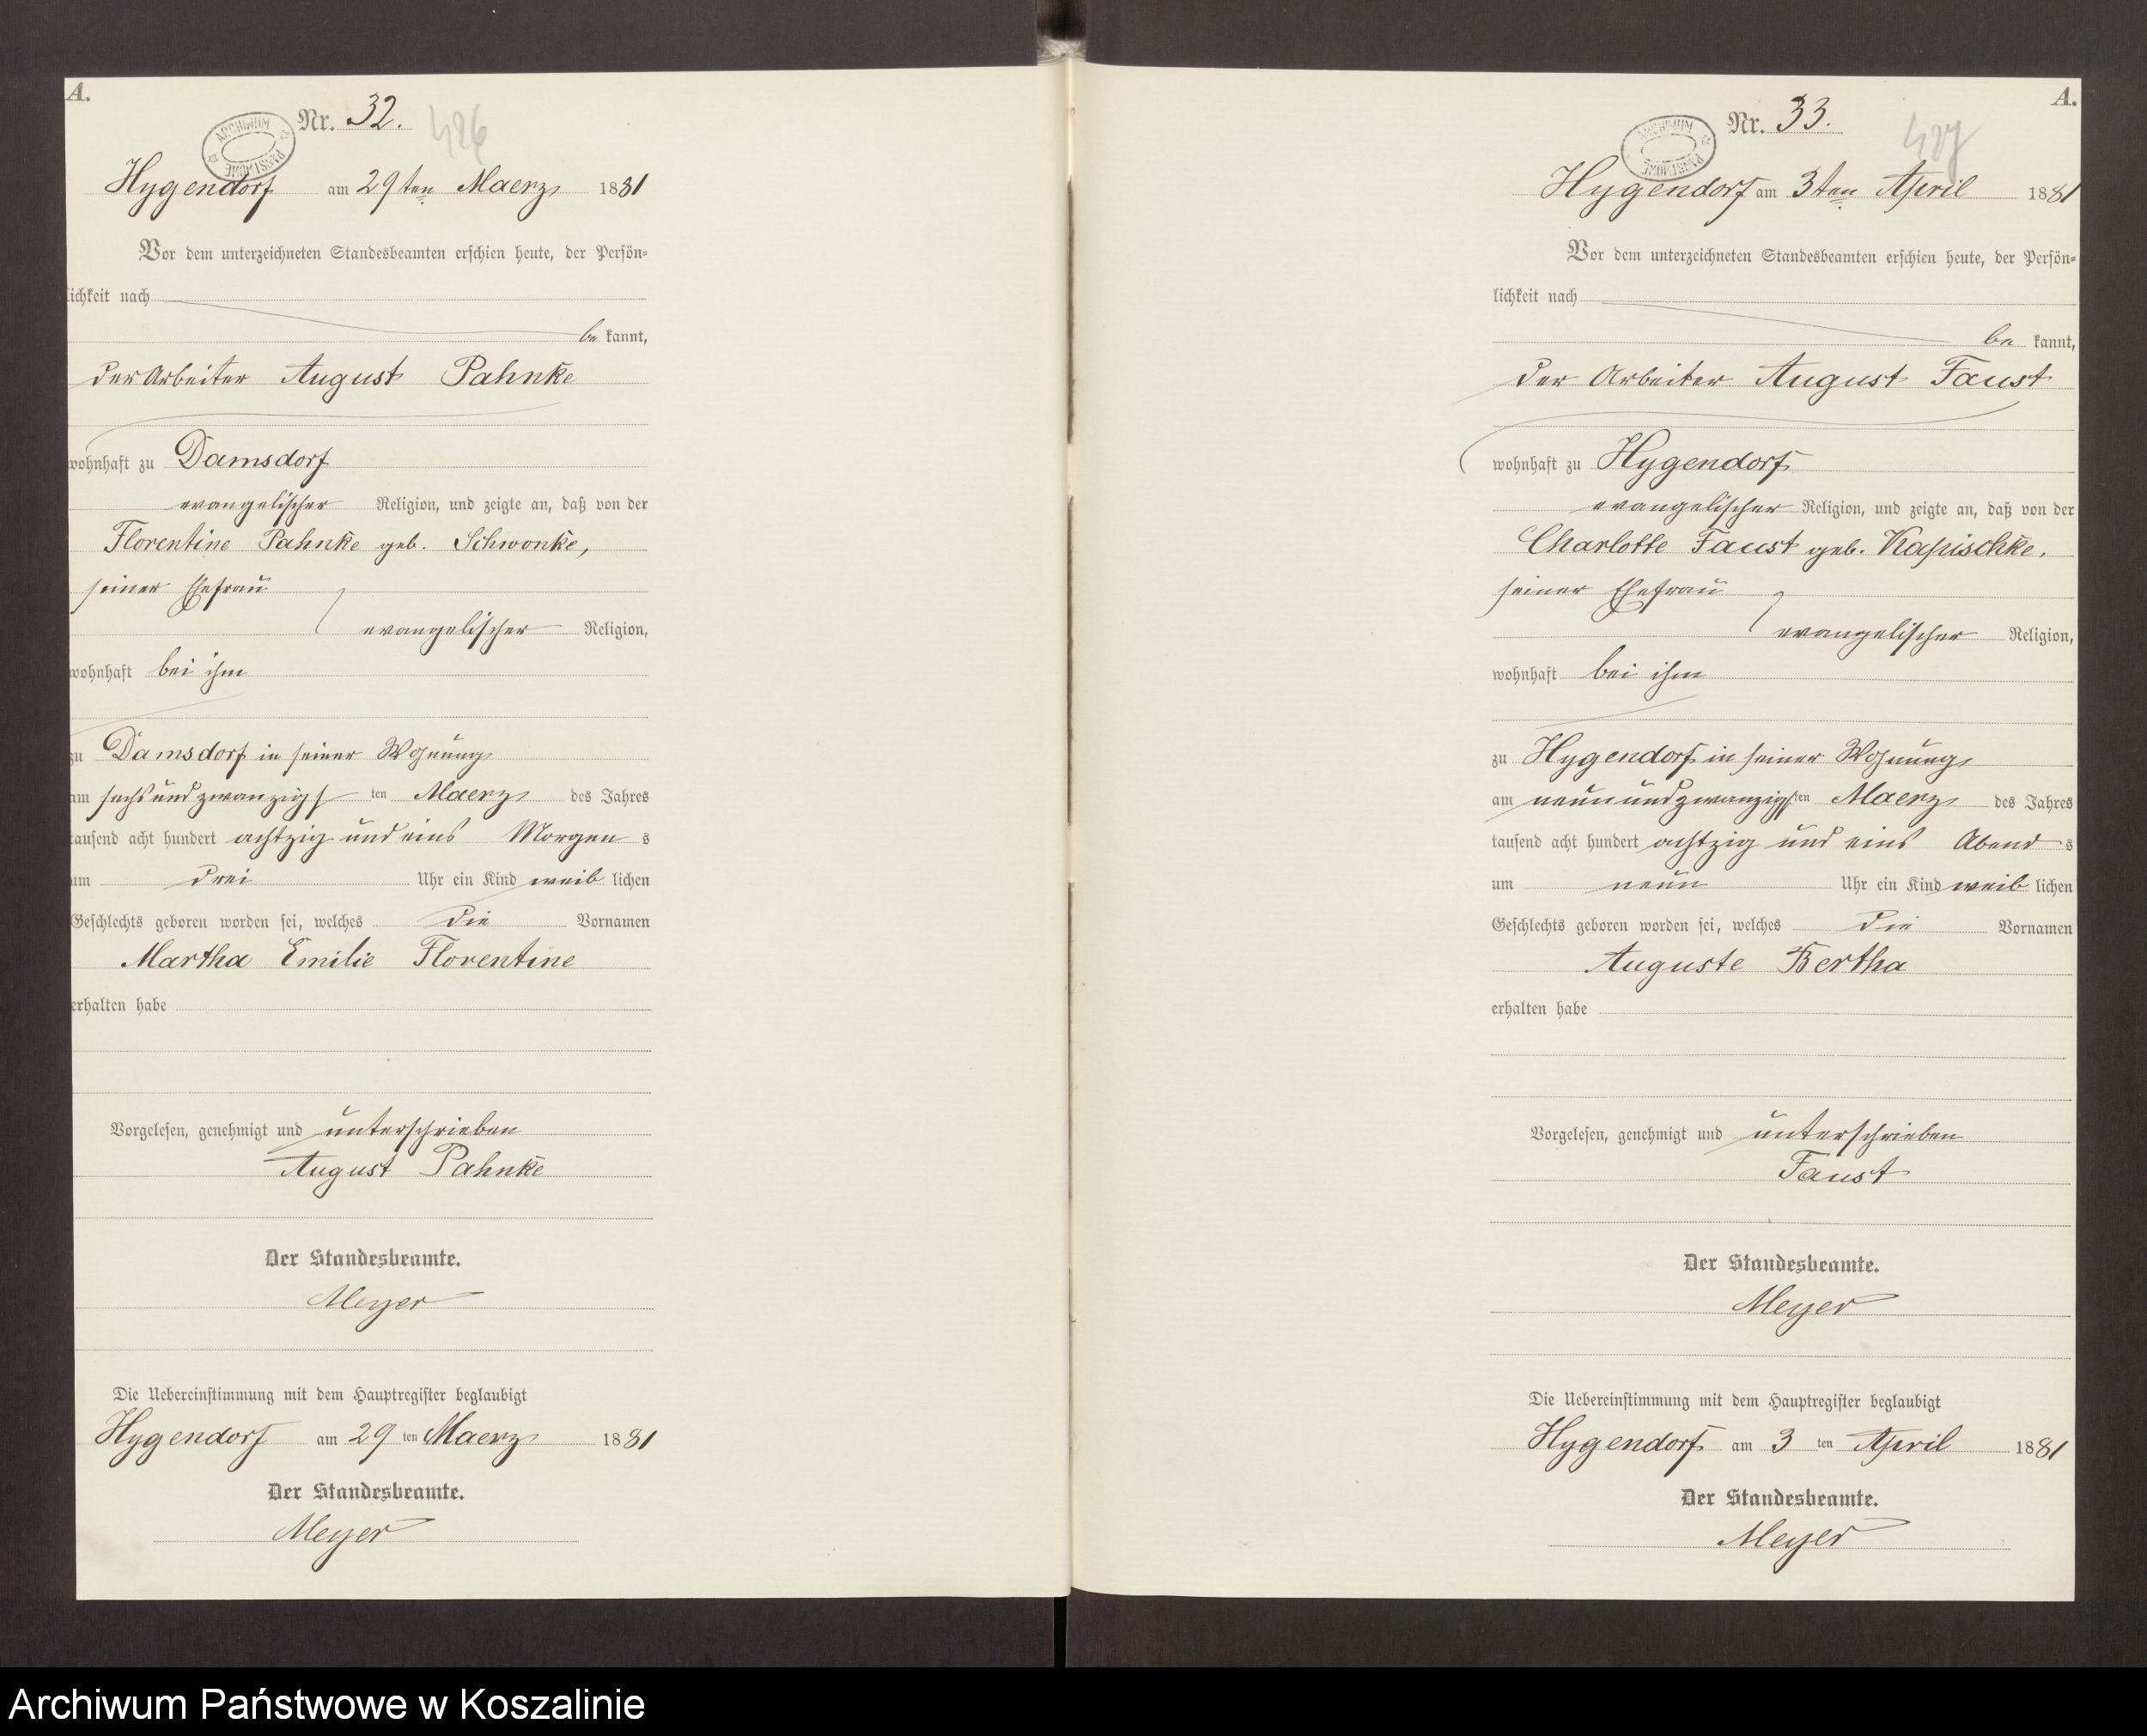 A.
ARCHIWUM PAŃSTWOWE
Nr. 32.
426
Hygendorf am 29ten Maerz 1881
Vor dem unterzeichneten Standesbeamten erschien heute, der Persön-
lichkeit nach
be kannt,
der Arbeiter August Pahnke
wohnhaft zu Damsdorf
evangelischer Religion, und zeigte an, daß von der
Florentine Pahnke geb. Schwonke,
seiner Ehefrau
evangelischer Religion,
wohnhaft bei ihm
zu Damsdorf in seiner Wohnung
am sechsundzwanzigsten Maerz des Jahres
tausend acht hundert achtzig und eins Morgens
um drei Uhr ein Kind weiblichen
Geschlechts geboren worden sei, welches die Vornamen
Martha Emilie Florentine
erhalten habe
Vorgelesen, genehmigt und unterschrieben
August Pahnke
Der Standesbeamte.
Meyer
Die Uebereinstimmung mit dem Hauptregister beglaubigt
Hygendorf am 29 ten Maerz 1881
Der Standesbeamte.
Meyer
A.
ARCHIWUM PAŃSTWOWE
Nr. 33.
427
Hygendorf am 3ten April 1881
Vor dem unterzeichneten Standesbeamten erschien heute, der Persön-
lichkeit nach
be kannt,
der Arbeiter August Faust
wohnhaft zu Hygendorf
evangelischer Religion, und zeigte an, daß von der
Charlotte Faust geb. Kapischke.
seiner Ehefrau
evangelischer Religion,
wohnhaft bei ihm
zu Hygendorf in seiner Wohnung
am neunundzwanzigsten Maerz des Jahres
tausend acht hundert achtzig und eins Abends
um neun Uhr ein Kind weiblichen
Geschlechts geboren worden sei, welches die Vornamen
Auguste Bertha
erhalten habe
Vorgelesen, genehmigt und unterschrieben
Faust
Der Standesbeamte.
Meyer
Die Uebereinstimmung mit dem Hauptregister beglaubigt
Hygendorf am 3 ten April 1881
Der Standesbeamte.
Meyer
Archiwum Państwowe w Koszalinie